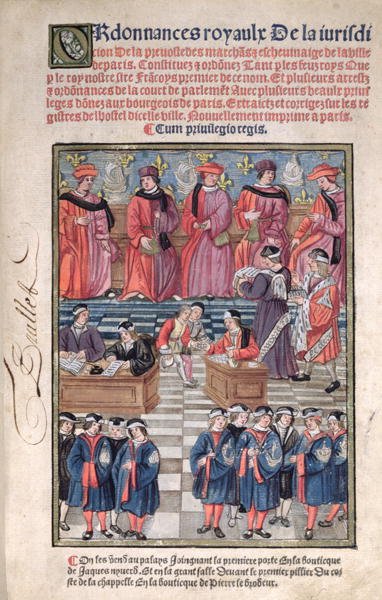 ORdonnances royaulx De la iurisdi
cion De la preuostedes marchãs & escheuinaige de la ville
de paris. Constituez & ordõnez Tant p les feuz roys Que
p le roy nostre sire Frãcoys premier de ce nom. Et plusieurs arrestz
& ordõnãces de la court de parlemẽt Auec plusieurs beaulx priui
leges dõnez aux bourgeois de paris. Extraictz et corrigez sur les re
gistres de lhostel dicelle ville. Nouuellement imprime a paris.
¶ Cum priuilegio regis.
¶ On les vẽd au palays Joingnant la premiere porte En la bouticque
de Jaques nyuerd. Et en la grant salle Deuant le premier pillier Du co
ste de la chappelle En la bouticque de Pierre le brodeur.